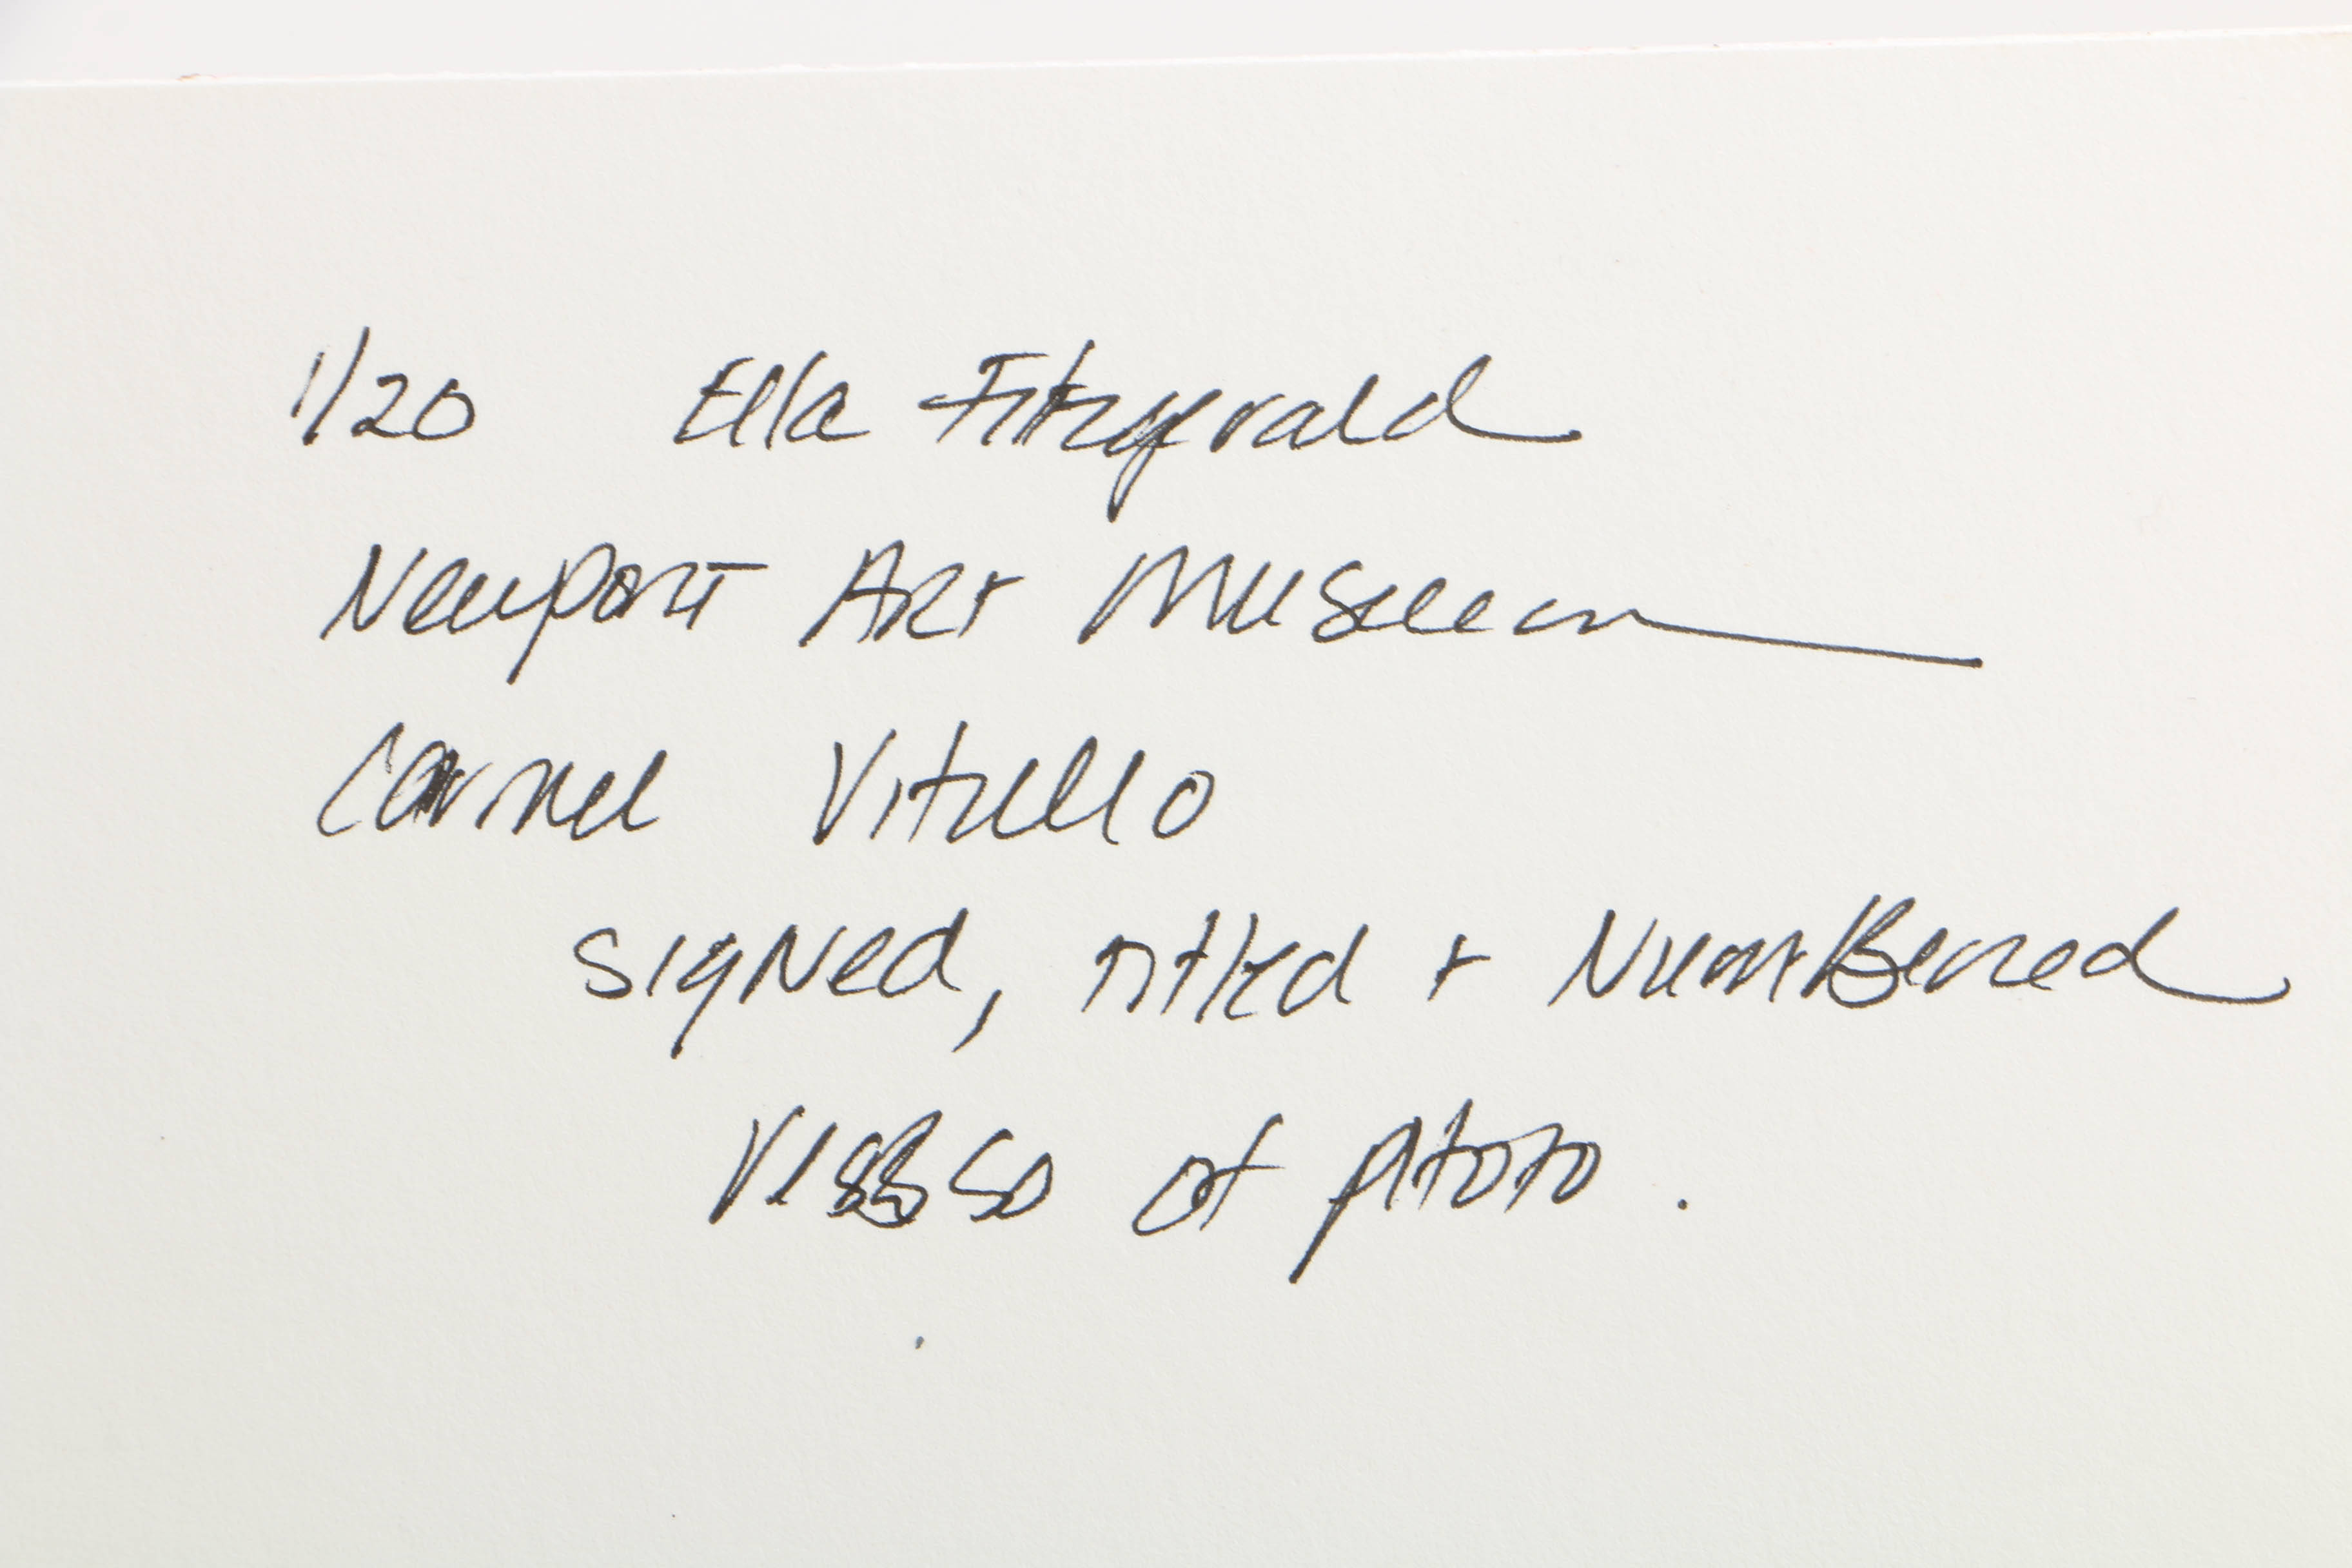 1/20 Ella Fitzgerald
Newport Art Museum
Carmel Vitullo
Signed, titled + NumBered
Verso of photo.